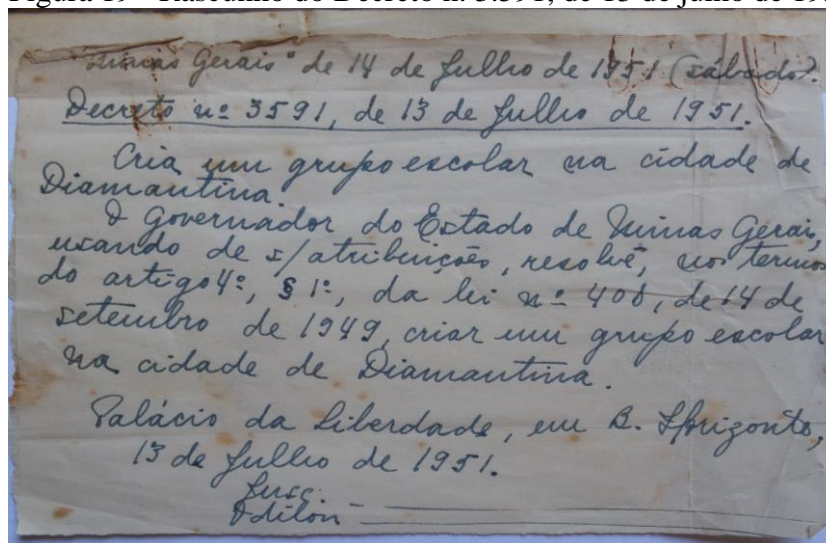 Figura 19 – Rascunho do Decreto n. 3.591, de 13 de julho de 19
"Minas Gerais" de 14 de Julho de 1951 (sábado).
Decreto nº 3591, de 13 de Julho de 1951.
Cria um grupo escolar na cidade de
Diamantina.
O Governador do Estado de Minas Gerais,
usando de s/ atribuições, resolve, nos termos
do artigo 4º, § 1º, da lei nº 406, de 14 de
setembro de 1949, criar um grupo escolar
na cidade de Diamantina.
Palácio da Liberdade, em B. Horizonte,
13 de Julho de 1951.
Jusc.
Odilon